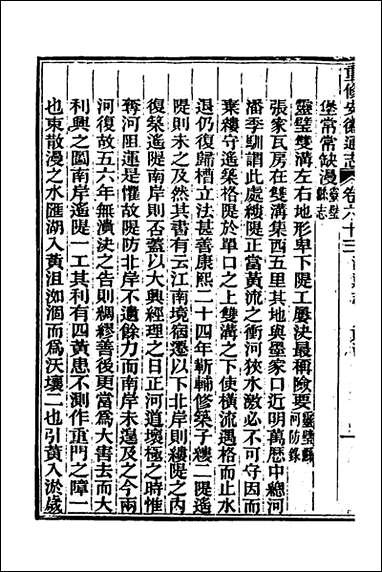 重修安徽通志 卷六十三
堡常常缺漫靈璧縣志
靈璧雙溝左右地形卑下隄工屢決最稱險要靈璧縣河防錄
張家瓦房在雙溝集西五里其地與墨家口近明萬歷中總河
潘季馴謂此處縷隄正當黃流之衝河狹水激必不可守因而
棄縷守遙築格隄於單口之上雙溝之下使橫流遇格而止水
退仍復歸槽立法甚善康熙二十四年靳輔修築子縷二隄遙
隄則未之及然其書有云江南境宿遷以下北岸則縷隄之內
復築遙隄南岸則否蓋以大興經理之日正河道壞極之時惟
奪河阻運是懼故隄防北岸不遺餘力而南岸未遑及之今兩
河復故五六年無潰決之告則綢繆善後更當爲大書去而大
利興之圖南岸遙隄一工其利有四黃患不測作重門之障一
也東散漫之水匯湖入黃沮洳涸而爲沃壤二也引黃入淤歲